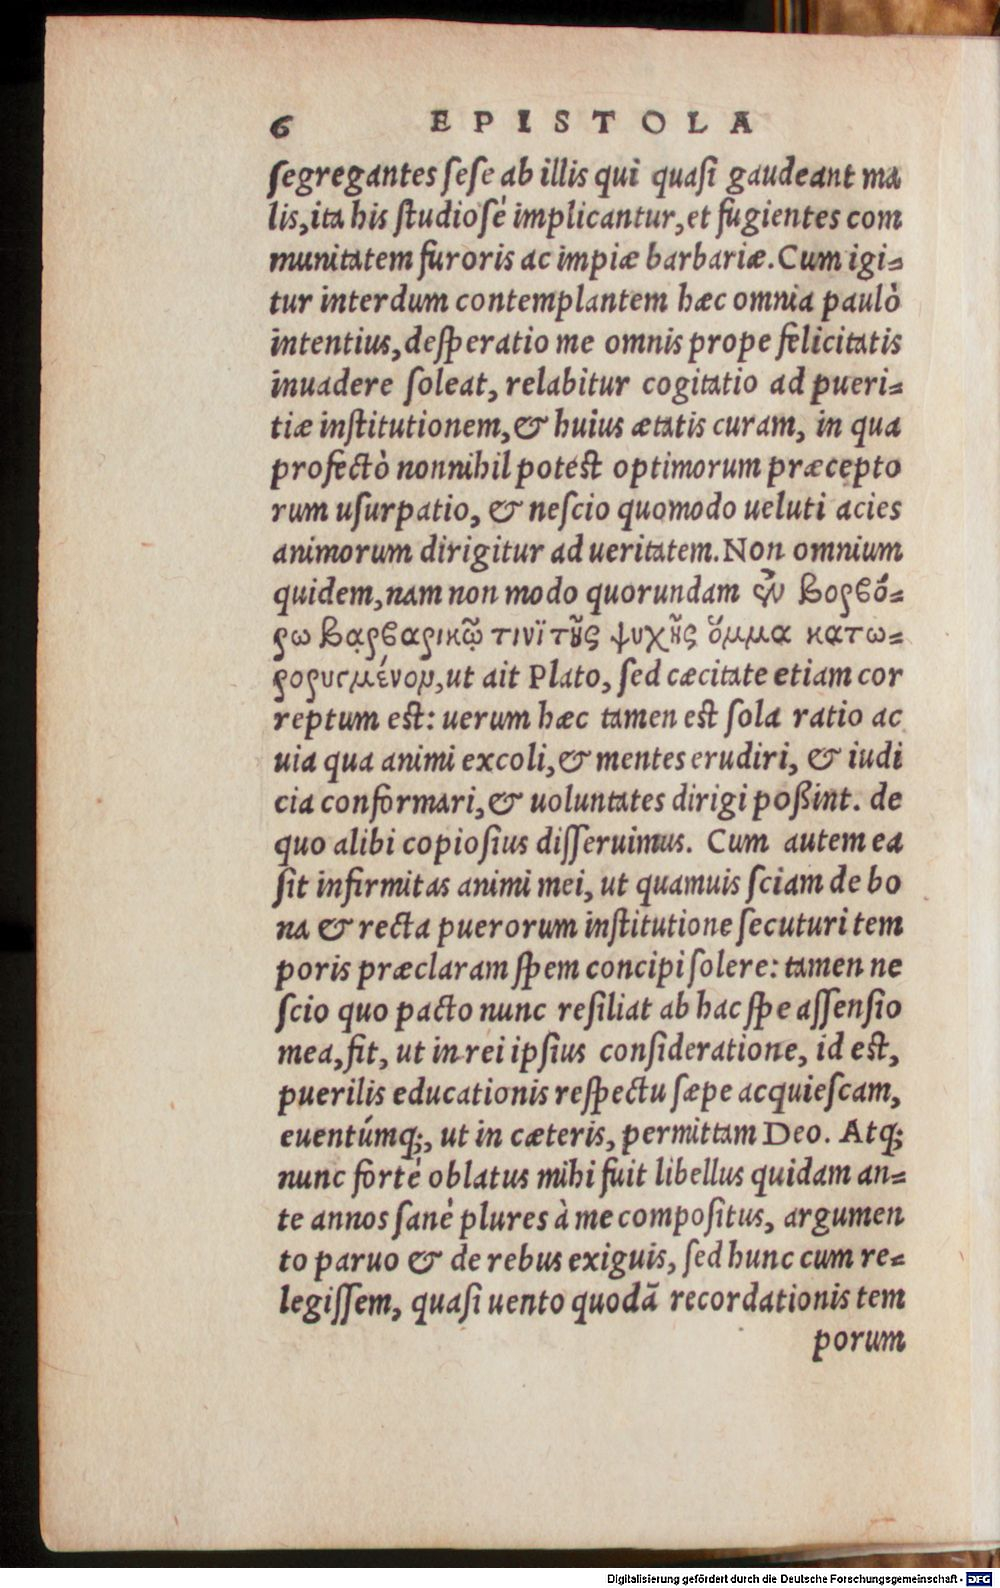 6 EPISTOLA
segregantes sese ab illis qui quasi gaudeant ma
lis, ita his studiosè implicantur, et fugientes com
munitatem furoris ac impiæ barbariæ. Cum igi=
tur interdum contemplantem hæc omnia paulò
intentius, desperatio me omnis prope felicitatis
inuadere soleat, relabitur cogitatio ad pueri=
tiæ institutionem, & huius ætatis curam, in qua
profectò nonnihil potest optimorum præcepto
rum usurpatio, & nescio quomodo ueluti acies
animorum dirigitur ad ueritatem. Non omnium
quidem, nam non modo quorundam ἐν βορβό=
ρῳ βαρβαρικῷ τινὶ τῆς ψυχῆς ὄμμα κατω=
ρορυσμένον, ut ait Plato, sed cæcitate etiam cor
reptum est: uerum hæc tamen est sola ratio ac
uia qua animi excoli, & mentes erudiri, & iudi
cia conformari, & uoluntates dirigi poßint. de
quo alibi copiosius disseruimus. Cum autem ea
sit infirmitas animi mei, ut quamuis sciam de bo
na & recta puerorum institutione secuturi tem
poris præclaram spem concipi solere: tamen ne
scio quo pacto nunc resiliat ab hac spe assensio
mea, fit, ut in rei ipsius consideratione, id est,
puerilis educationis respectu sæpe acquiescam,
euentúmq;, ut in cæteris, permittam Deo. Atq;
nunc fortè oblatus mihi fuit libellus quidam an=
te annos sanè plures à me compositus, argumen
to paruo & de rebus exiguis, sed hunc cum re=
legissem, quasi uento quodã recordationis tem
porum
Digitalisierung gefördert durch die Deutsche Forschungsgemeinschaft - DFG